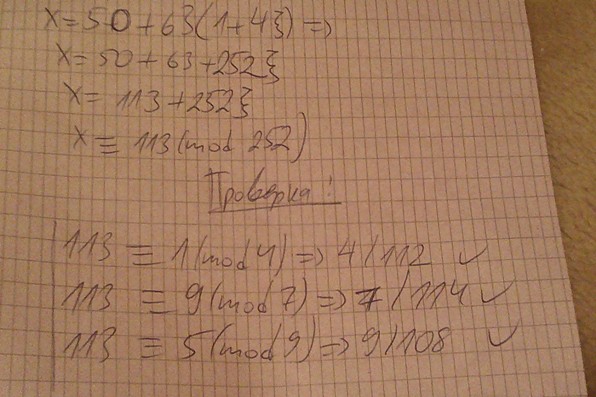 x=50+63(1+4ξ)=>
x=50+63+252ξ
x=113+252ξ
x≡113(mod 252)
Проверка!
113≡1(mod 4)=>4/112 ✓
113≡9(mod 7)=>7/114 ✓
113≡5(mod 9)=>9/108 ✓